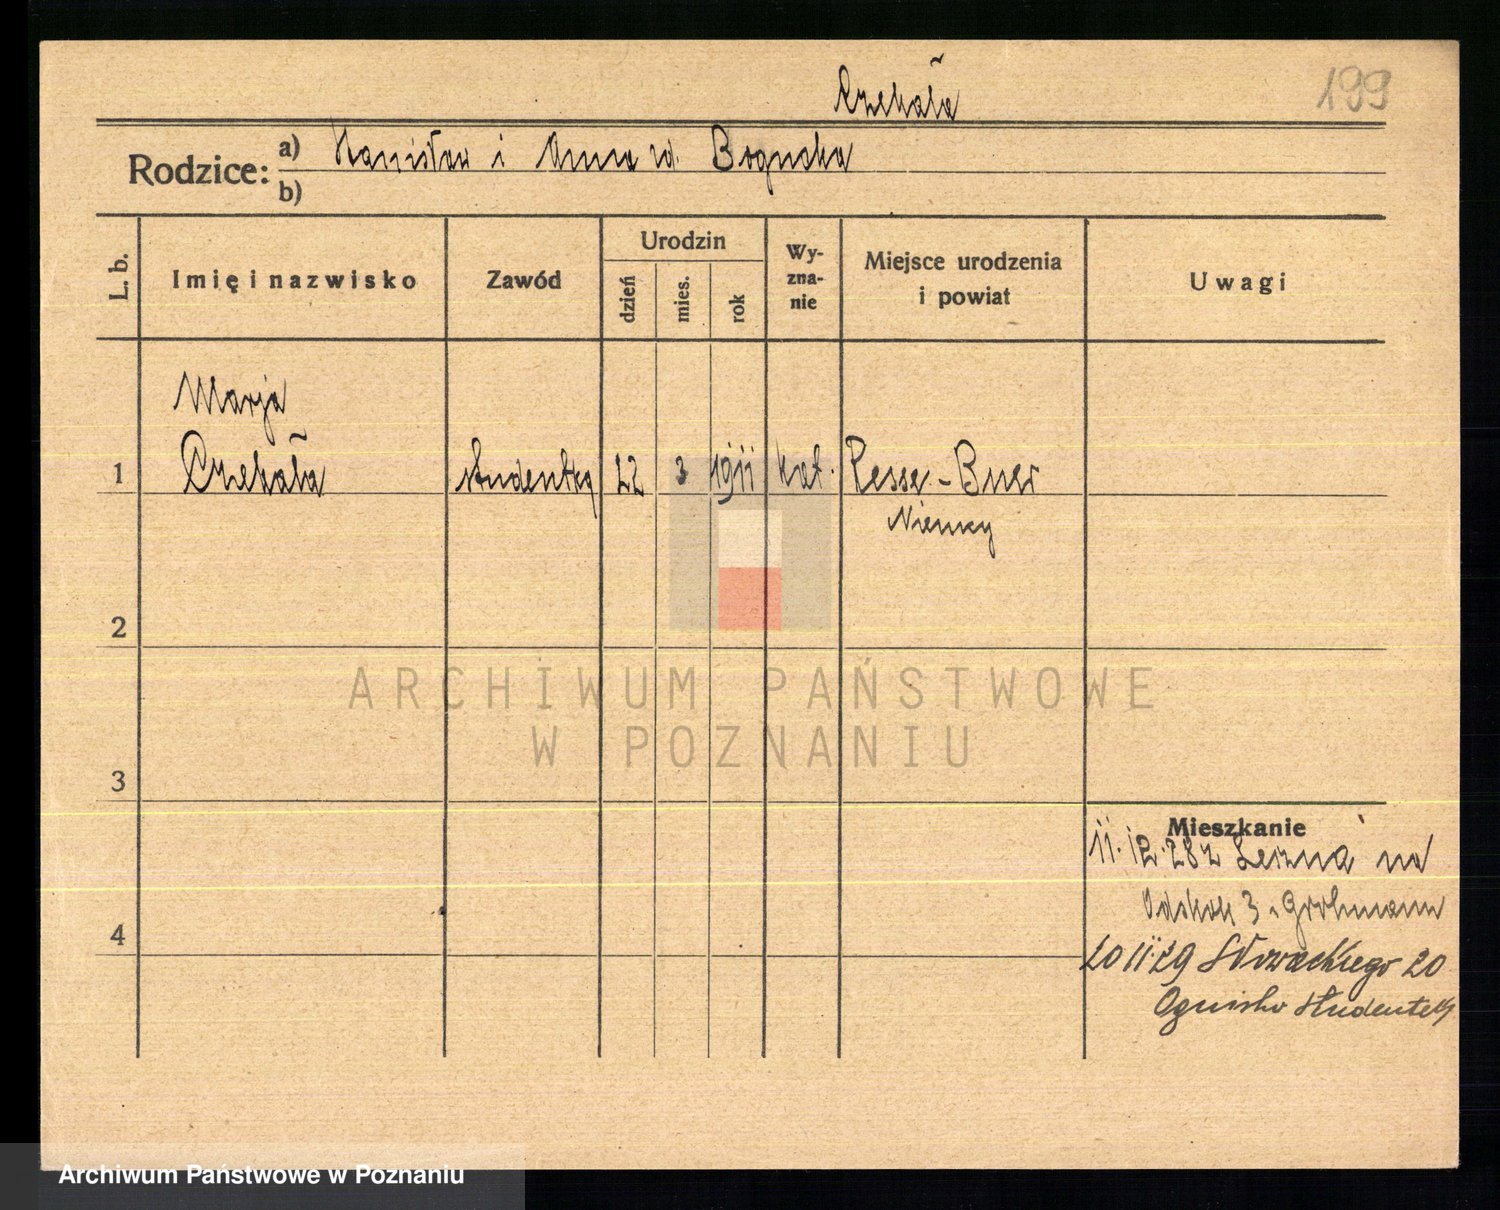 Czekała
199
Rodzice: a) Stanisław i Anna zd. Bogucka
b)
L. b. Imię i nazwisko Zawód Urodzin dzień mies. rok Wyznanie Miejsce urodzenia i powiat Uwagi
Marja
1 Czekała studentka 22 3 1911 kat. Resse-Buer
Niemcy
2
ARCHIWUM PAŃSTWOWE
W POZNANIU
3
Mieszkanie
11.12.28 z Leszna na
3 Grohmann
4
20 11 29 Słowackiego 20
Ognisko Studentek
Archiwum Państwowe w Poznaniu